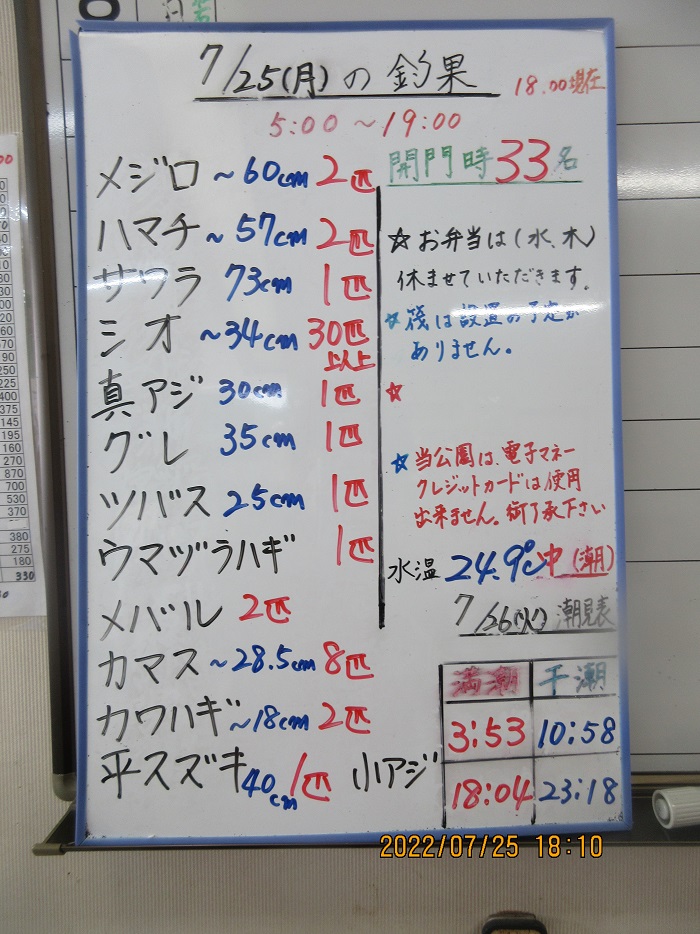 7/25(月)の釣果
18.00現在
5:00～19:00
開門時33名
メジロ ～60cm 2匹
ハマチ ～57cm 2匹
サワラ 73cm 1匹
シオ ～34cm 30匹
以上
真アジ 30cm 1匹
グレ 35cm 1匹
ツバス 25cm 1匹
ウマヅラハギ 1匹
メバル 2匹
カマス ～28.5cm 8匹
カワハギ ～18cm 2匹
平スズキ 40cm 1匹 小アジ
☆お弁当は(水、木)
休ませていただきます。
☆筏は設置の予定が
ありません。
☆
☆当公園は、電子マネー
クレジットカードは使用
出来ません。御了承下さい
水温 24.9℃ 中(潮)
7/26(火)潮見表
満潮 干潮
3:53 10:58
18:04 23:18
2022/07/25 18:10
380
275
180
330